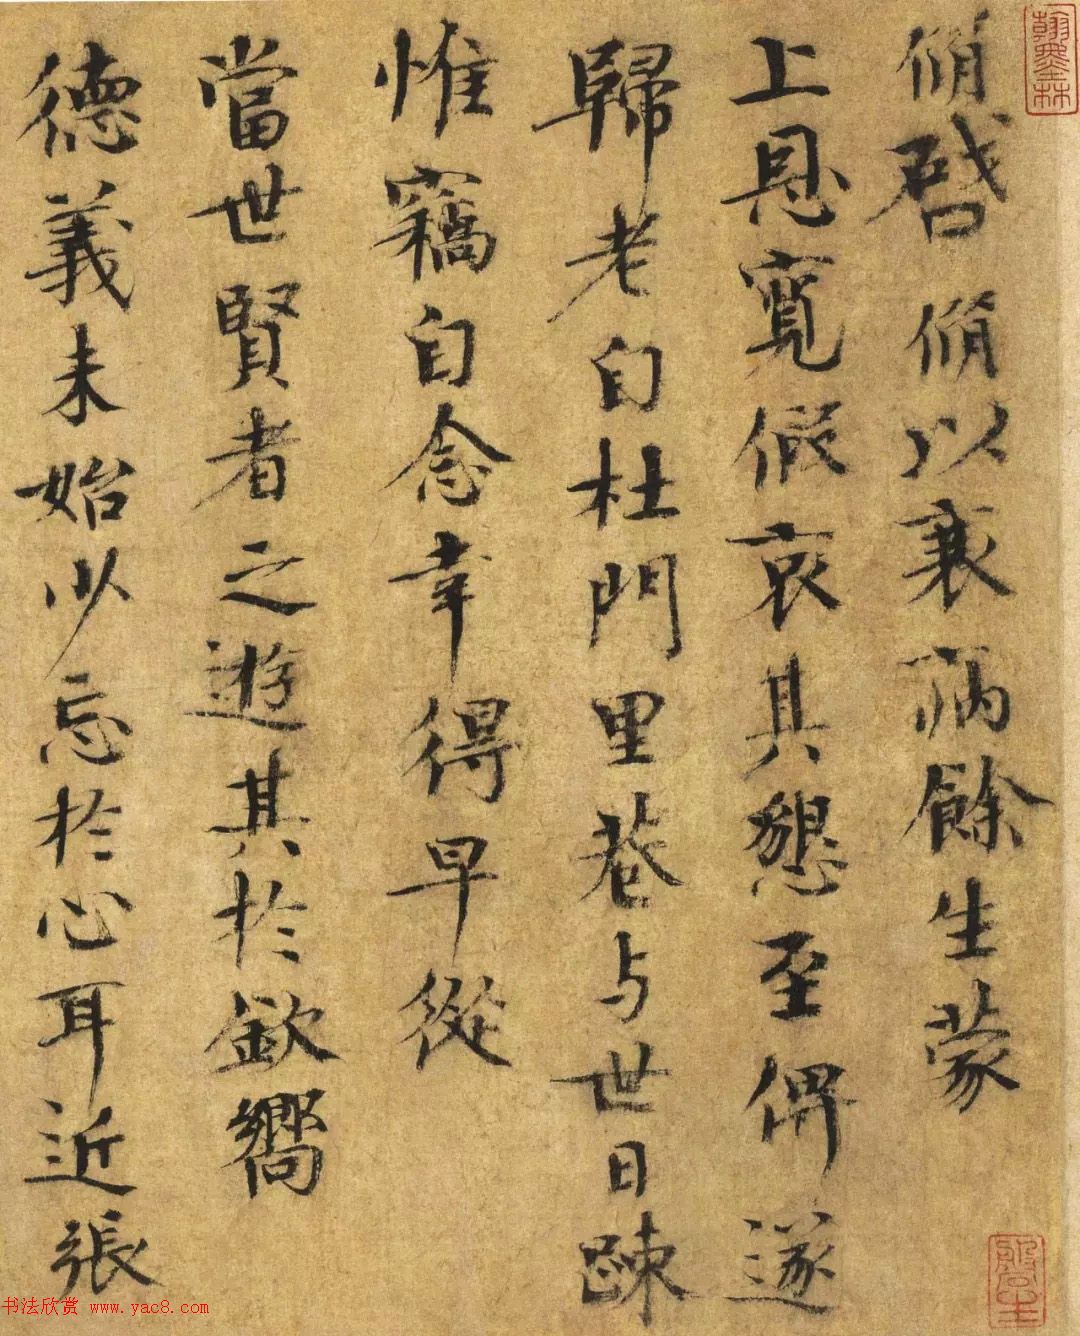 脩啓脩以衰病餘生蒙
上恩寬假哀其懇至俾遂
歸老自杜門里巷与世日疎
惟竊自念幸得早從
當世賢者之遊其於欽嚮
德義未始少忘於心耳近張
翰墨林
书法欣赏 www.yac8.com